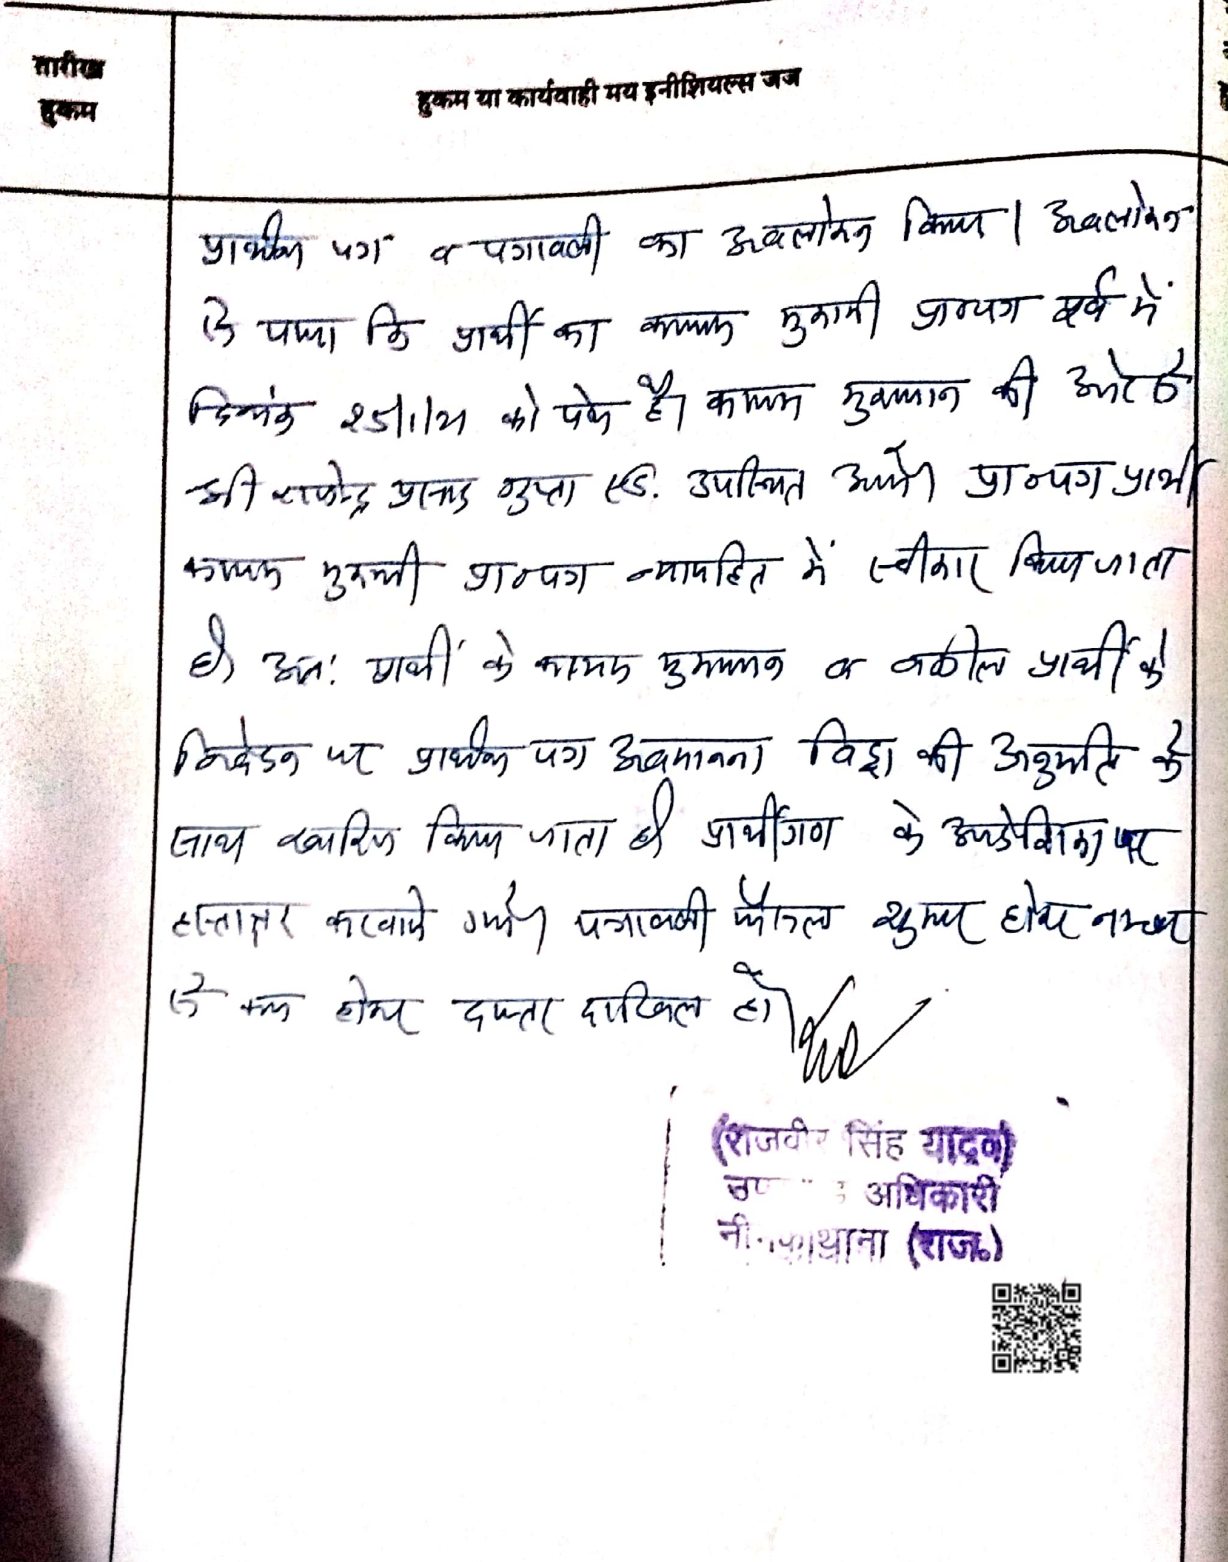 तारीख
हुकम
हुकम या कार्यवाही मय इनीशियल्स जज
प्रार्थना पत्र व पत्रावली का अवलोकन किया। अवलोकन
से पाया कि प्रार्थी का कायम मुकामी प्रा०पत्र पूर्व में
दिनांक 25/1/21 को पेश है। कायम मुकामान की ओर से
श्री राजेन्द्र प्रसाद गुप्ता एड. उपस्थित आये। प्रा०पत्र प्रार्थी
कायम मुकामी प्रा०पत्र न्यायहित में स्वीकार किया जाता
है। अतः प्रार्थी के कायम मुकामान व वकील प्रार्थी के
निवेदन पर प्रार्थना पत्र अवमानना विड्रा की अनुमति के
साथ खारिज किया जाता है। प्रार्थीगण के आदेशिका पर
हस्ताक्षर करवाये गये। पत्रावली फैसल शुमार होकर नम्बर
से कम होकर दफ्तर दाखिल हो।
(राजवीर सिंह यादव)
अधिकारी
नीमकाथाना (राज०)